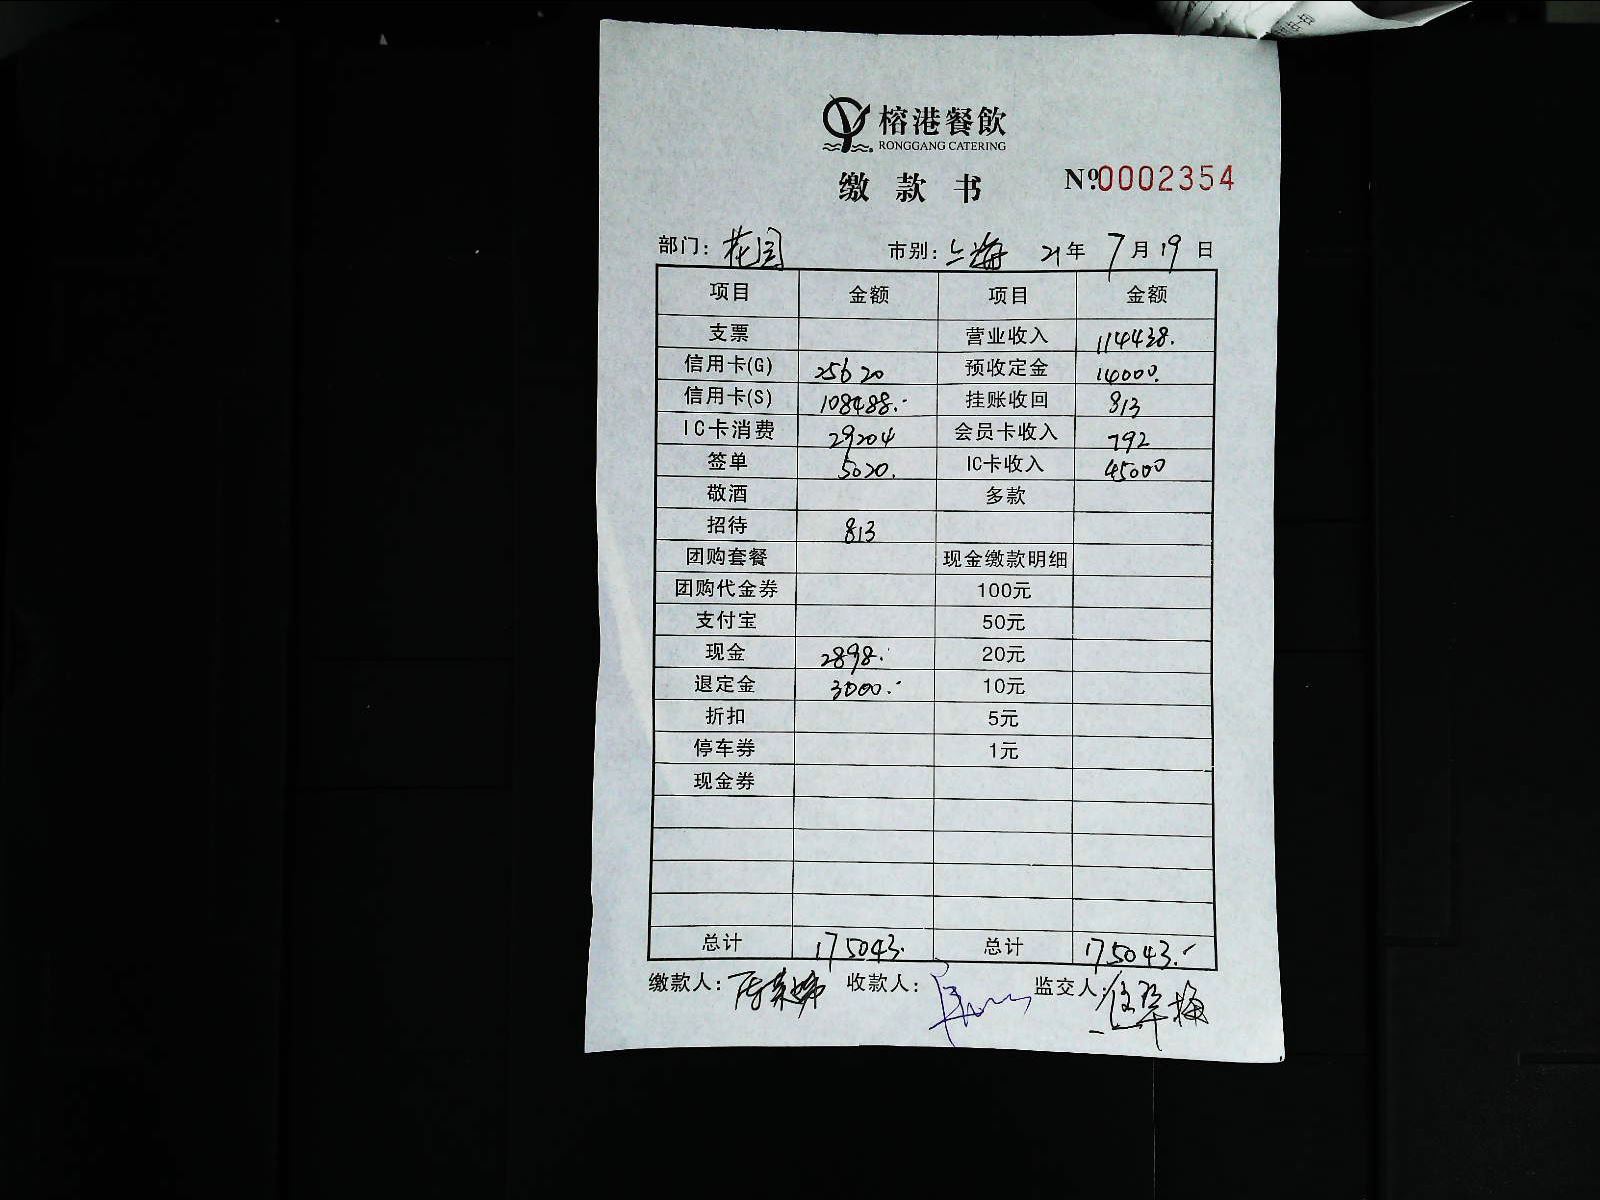 榕港餐飲
RONGGANG CATERING
缴款书 №0002354
部门：花园 市别：上海 21年 7月19日
项目 金额 项目 金额
支票 营业收入 114438.
信用卡(G) 25620 预收定金 14000.
信用卡(S) 108488.- 挂账收回 813
IC卡消费 29204 会员卡收入 792
签单 5020. IC卡收入 45000
敬酒 多款
招待 813
团购套餐 现金缴款明细
团购代金券 100元
支付宝 50元
现金 2898.- 20元
退定金 3000.- 10元
折扣 5元
停车券 1元
现金券
总计 175043. 总计 175043.-
缴款人： 收款人： 监交人：